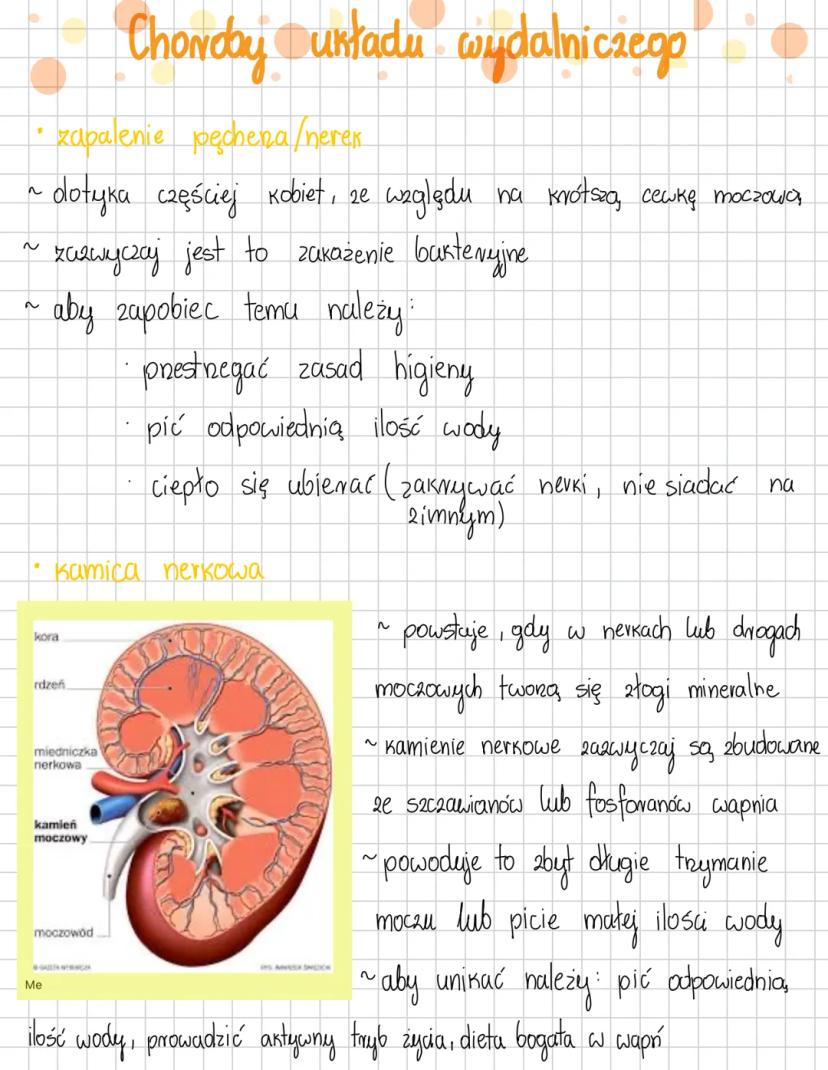 Choroby układu wydalniczego
• zapalenie pęcherza/nerek
~ dotyka częściej kobiet, ze względu na krótszą cewkę moczową
~ zazwyczaj jest to zakażenie bakteryjne
~ aby zapobiec temu należy:
· przestrzegać zasad higieny
· pić odpowiednią ilość wody
· ciepło się ubierać (zakrywać nerki, nie siadać na
zimnym)
• kamica nerkowa
kora
rdzeń
miedniczka
nerkowa
kamień
moczowy
moczowód
Me
~ powstaje, gdy w nerkach lub drogach
moczowych tworzą się złogi mineralne
~ kamienie nerkowe zazwyczaj są zbudowane
ze szczawianów lub fosforanów wapnia
~ powoduje to zbyt długie trzymanie
moczu lub picie małej ilości wody
~ aby unikać należy: pić odpowiednią
ilość wody, prowadzić aktywny tryb życia, dieta bogata w wapń